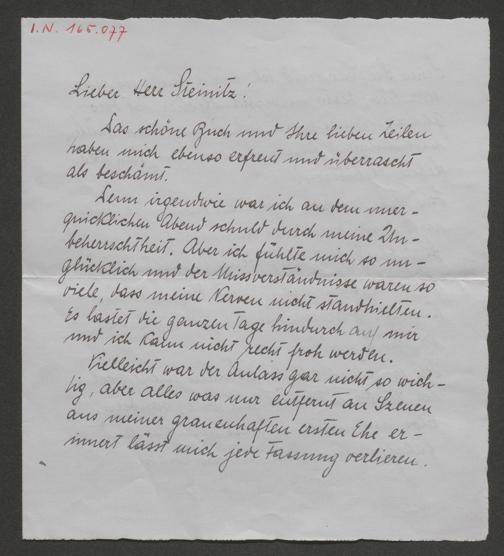 I.N. 165.077
Lieber Herr Steinitz!
Das schöne Buch und Ihre lieben Zeilen
haben mich ebenso erfreut und überrascht
als beschämt.
Denn irgendwie war ich an dem uner-
quicklichen Abend schuld durch meine Un-
beherrschtheit. Aber ich fühlte mich so un-
glücklich und der Missverständnisse waren so
viele, dass meine Nerven nicht standhielten.
Es lastet die ganzen Tage hindurch auf mir
und ich kann nicht recht froh werden.
Vielleicht war der Anlass gar nicht so wich-
tig, aber alles was nur entfernt an Szenen
aus meiner grauenhaften ersten Ehe er-
innert lässt mich jede Fassung verlieren.